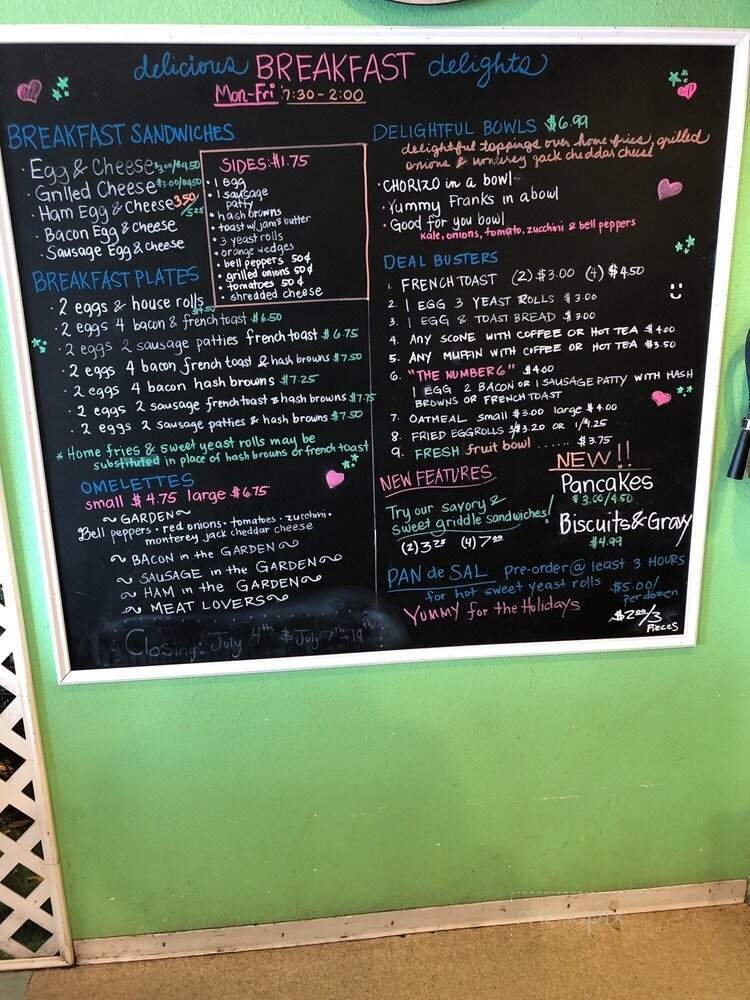 delicious BREAKFAST delights
Mon-Fri 7:30-2:00
BREAKFAST SANDWICHES
• Egg & Cheese $3.00/$4.50
• Grilled Cheese $3.00/$4.50
• Ham Egg & Cheese 3.50/5.25
• Bacon Egg & Cheese
• Sausage Egg & Cheese
SIDES: $1.75
• 1 egg
• 1 sausage
patty
• hash browns
• toast w/jam & butter
• 3 yeast rolls
• orange wedges
• bell peppers 50¢
• grilled onions 50¢
• tomatoes 50¢
• shredded cheese
BREAKFAST PLATES
• 2 eggs & house rolls
• 2 eggs 4 bacon & french toast $6.50
• 2 eggs 2 sausage patties french toast $6.75
• 2 eggs 4 bacon french toast & hash browns $7.50
• 2 eggs 4 bacon hash browns $7.25
• 2 eggs 2 sausage french toast & hash browns $7.75
• 2 eggs 2 sausage patties & hash browns $7.50
* Home fries & sweet yeast rolls may be
substituted in place of hash browns or french toast
OMELETTES
small $4.75 large $6.75
~ GARDEN ~
Bell peppers • red onions • tomatoes • zucchini •
monterey jack cheddar cheese
~ BACON in the GARDEN ~
~ SAUSAGE in the GARDEN ~
~ HAM in the GARDEN ~
~ MEAT LOVERS ~
Closing: July 4th & July 7th-19th
DELIGHTFUL BOWLS $6.99
delightful toppings over home fries, grilled
onions & monterey jack cheddar cheese
• CHORIZO in a bowl
• Yummy Franks in a bowl
• Good for you bowl
Kale, onions, tomato, zucchini & bell peppers
DEAL BUSTERS
1. FRENCH TOAST (2) $3.00 (4) $4.50
2. 1 EGG 3 YEAST ROLLS $3.00
3. 1 EGG & TOAST BREAD $3.00
4. ANY SCONE WITH COFFEE OR HOT TEA $4.00
5. ANY MUFFIN WITH COFFEE OR HOT TEA $3.50
6. "THE NUMBER 6" $4.00
1 EGG 2 BACON OR 1 SAUSAGE PATTY WITH HASH
BROWNS OR FRENCH TOAST
7. OATMEAL small $3.00 large $4.00
8. FRIED EGGROLLS 3/$3.20 OR 1/$1.25
9. FRESH fruit bowl ...... $3.75
NEW FEATURES
Try our savory &
sweet griddle sandwiches!
(2) 3.75 (4) 7.00
NEW!!
Pancakes
$3.00/4.50
Biscuits & Gravy
$4.99
PAN de SAL pre-order @ least 3 HOURS
for hot sweet yeast rolls $5.00/
per dozen
YUMMY for the Holidays $2.00/3
PIECES